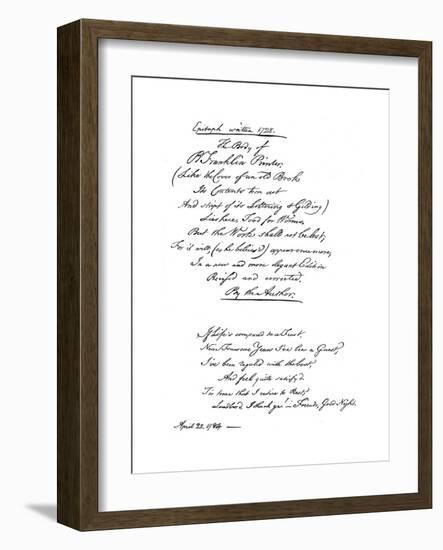 Epitaph written 1728.
The Body of
B Franklin Printer,
(Like the Cover of an old Book
Its Contents torn out
And stript of its Lettering & Gilding)
Lies here, Food for Worms.
But the Work shall not be lost;
For it will, (as he believ'd) appear once more,
In a new and more elegant Edition
Revised and corrected,
By the Author.
If Life's compared to a Feast,
Near Fourscore Years I've been a Guest;
I've been regaled with the best,
And feel quite satisfy'd.
'Tis time that I retire to Rest;
Landlord, I thank ye! Friends, Good Night.
April 22, 1784